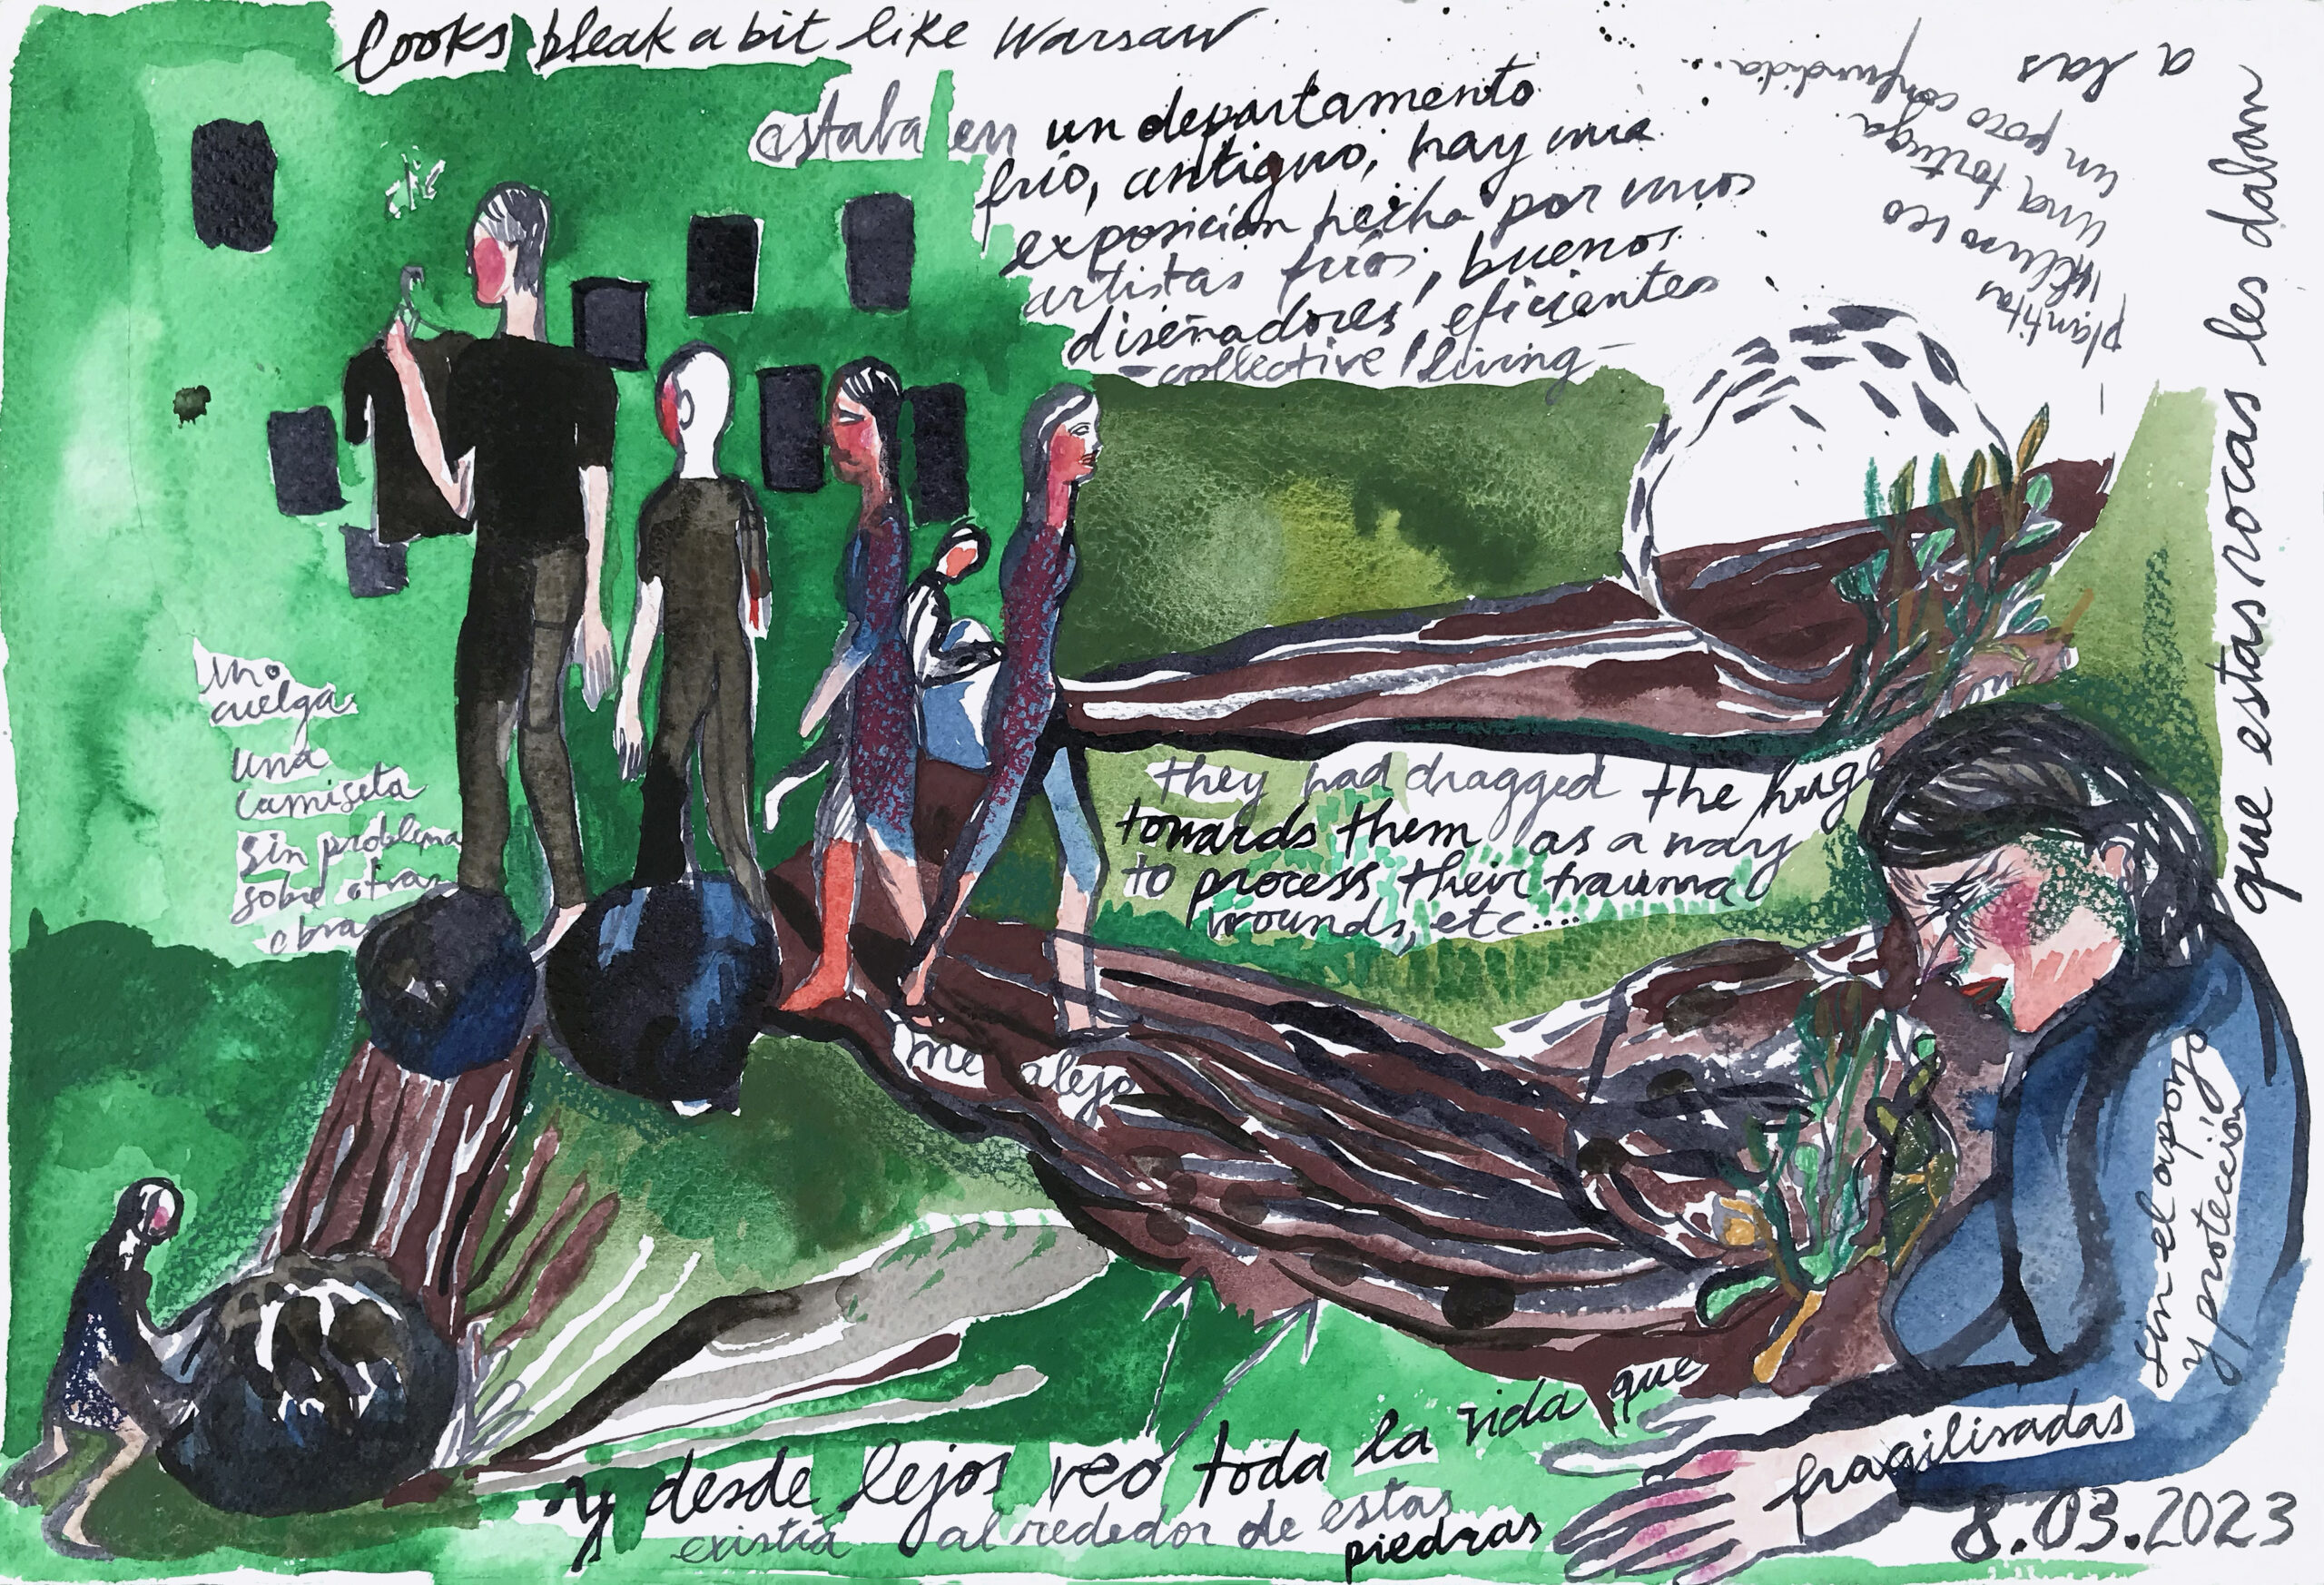 looks bleak a bit like Warsaw
estaba en un departamento
frío, antiguo, hay una
exposición hecha por unos
artistas fríos, buenos
diseñadores, eficientes
-collective living-
Uno
cuelga
una
camiseta
sin problema
sobre otras
obras
they had dragged the huge
towards them as a way
to process their trauma
wounds, etc...
me alejo
y desde lejos veo toda la vida que
existía alrededor de estas
piedras
fragilisadas
sin el apoyo
y protección
que estas rocas les daban
a las
plantitas
incluso veo
una tortuga
un poco confundida...
8.03.2023